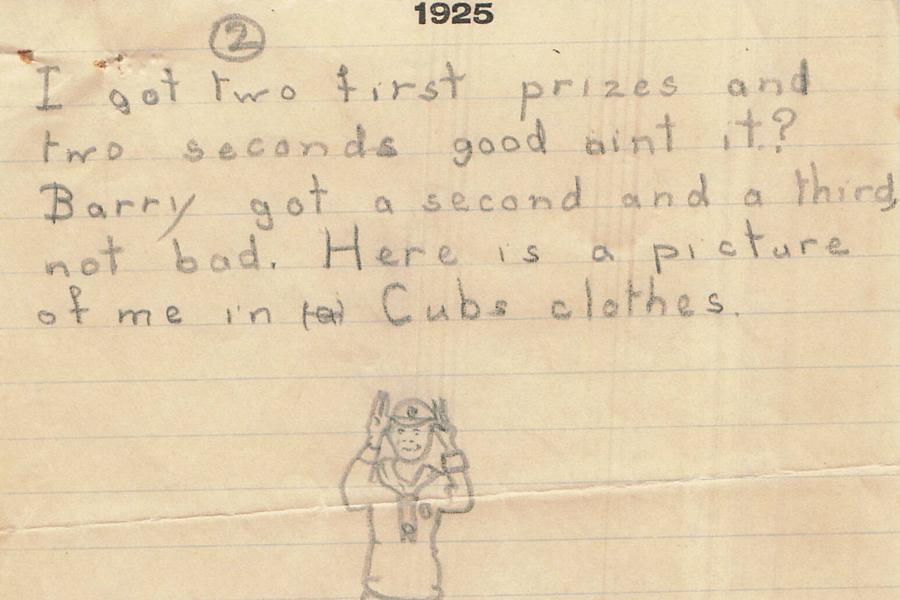 1925
2
I got two first prizes and
two seconds good aint it?
Barry got a second and a third,
not bad. Here is a picture
of me in (a) Cubs clothes.